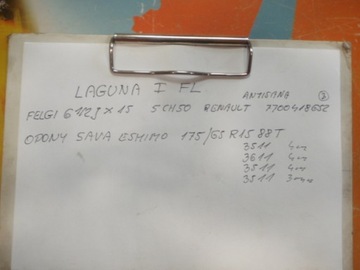 LAGUNA I FL
FELGI 6 1/2J X 15 5CH50 RENAULT 7700418652
OPONY SAVA ESKIMO 175/65 R15 88T
3511 4mm
3611 4mm
3511 4mm
3511 3mm